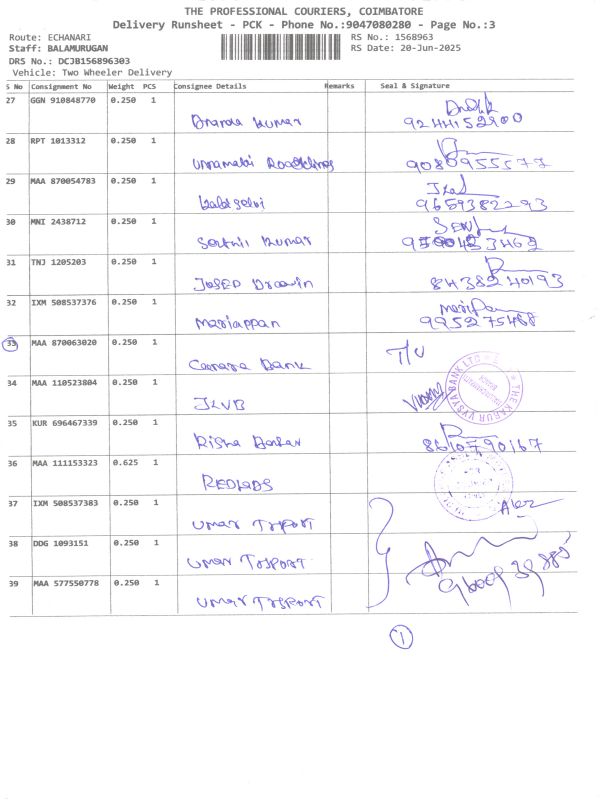 THE PROFESSIONAL COURIERS, COIMBATORE
Delivery Runsheet - PCK - Phone No.:9047080280 - Page No.:3
Route: ECHANARI
RS No.: 1568963
Staff: BALAMURUGAN
RS Date: 20-Jun-2025
DRS No.: DCJB156896303
Vehicle: Two Wheeler Delivery
S No Consignment No Weight PCS Consignee Details Remarks Seal & Signature
27 GGN 910848770 0.250 1
Kumar 9244152900
28 RPT 1013312 0.250 1
Unnamalai Roadlines 9080955577
29 MAA 870054783 0.250 1
9659382293
30 MNI 2438712 0.250 1
Senthil Kumar
31 TNJ 1205203 0.250 1
8438240193
32 IXM 508537376 0.250 1
Mariappan 995275488
33 MAA 870063020 0.250 1
Canara Bank
34 MAA 110523804 0.250 1
THE KARUR VYSYA BANK LTD
35 KUR 696467339 0.250 1
8610790167
36 MAA 111153323 0.625 1
37 IXM 508537383 0.250 1
Umar Tsport
38 DDG 1093151 0.250 1
Umar Tsport
39 MAA 577550778 0.250 1
Umar Tsport
1